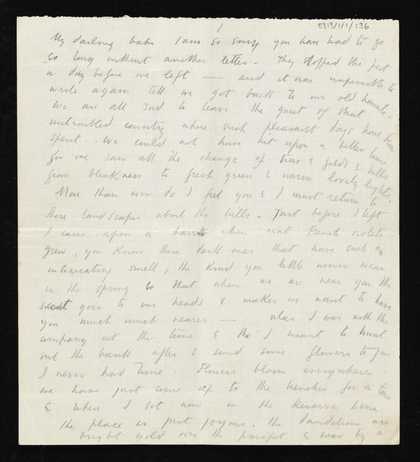 1
My darling babe I am so sorry you have had to go
so long without another letter. They stopped the post
a day before we left — and it was impossible to
write again till we got back to our old haunts.
We are all sad to leave the quiet of that
untroubled country where such pleasant days have been
spent. We could not have hit upon a better time
for we saw all the change of trees & fields & hills
from bleakness to fresh green & warm lovely lights.
More than ever do I feel you & I must return to
those landscapes about the hills. Just before I left
I came upon a bank where wild French violets
grew, you know those dark ones that have such an
intoxicating smell, & the kind you little women wear
in the spring so that when we are near you the
scent goes to our heads & makes us want to have
you much much nearer — alas I was with the
company at the time & tho I meant to hunt
out the bank after & send some flowers to you
I never had time. Flowers bloom everywhere &
we have just come up to the trenches for a time
& where I sit now in the reserve line
the place is just joyous, the dandelions are
bright gold over the parapet & near by a